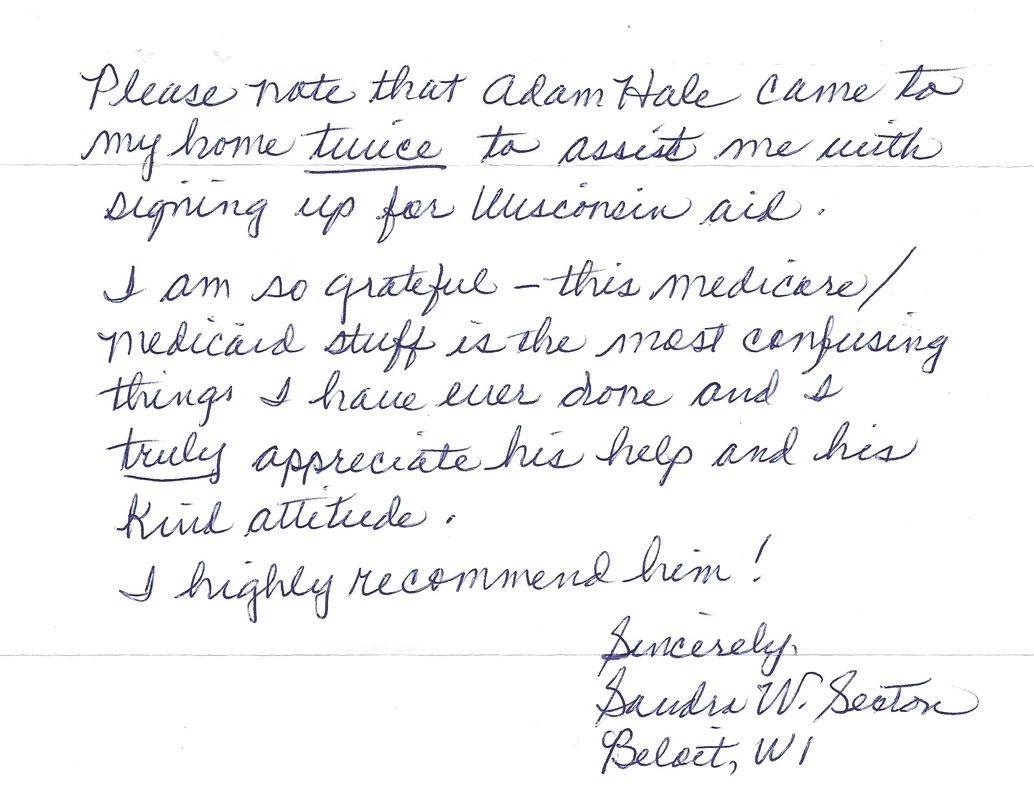 Please note that Adam Hale came to
my home twice to assist me with
signing up for Wisconsin aid.
I am so grateful – this medicare/
medicaid stuff is the most confusing
things I have ever done and I
truly appreciate his help and his
kind attitude.
I highly recommend him!
Sincerely,
Sandra W. Sexton
Beloit, WI